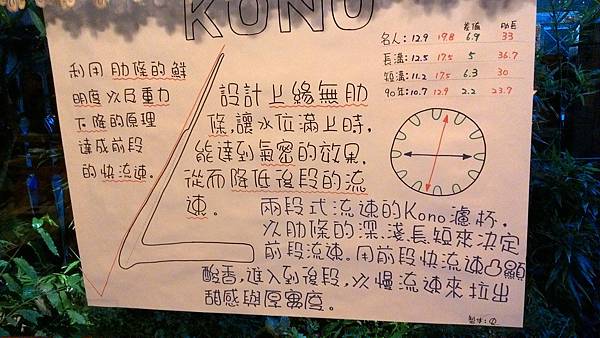 KONO
差值 肋長
名人：12.9 19.8 6.9 33
長溝：12.5 17.5 5 36.7
短溝：11.2 17.5 6.3 30
90年：10.7 12.9 2.2 23.7
利用肋條的鮮
明度以及重力
下降的原理
達成前段
的快流速。
設計上緣無肋
條，讓水位滿上時，
能達到氣密的效果，
從而降低後段的流
速。
兩段式流速的Kono濾杯，
以肋條的深、淺、長、短來決定
前段流速。用前段快流速凸顯
酸香，進入到後段，以慢流速來拉出
甜感與厚實度。